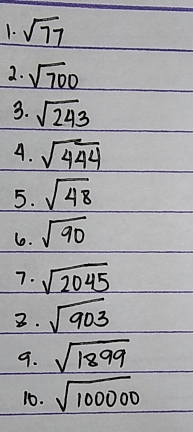 1. √77
2. √700
3. √243
4. √444
5. √48
6. √90
7. √2045
8. √903
9. √1899
10. √100000